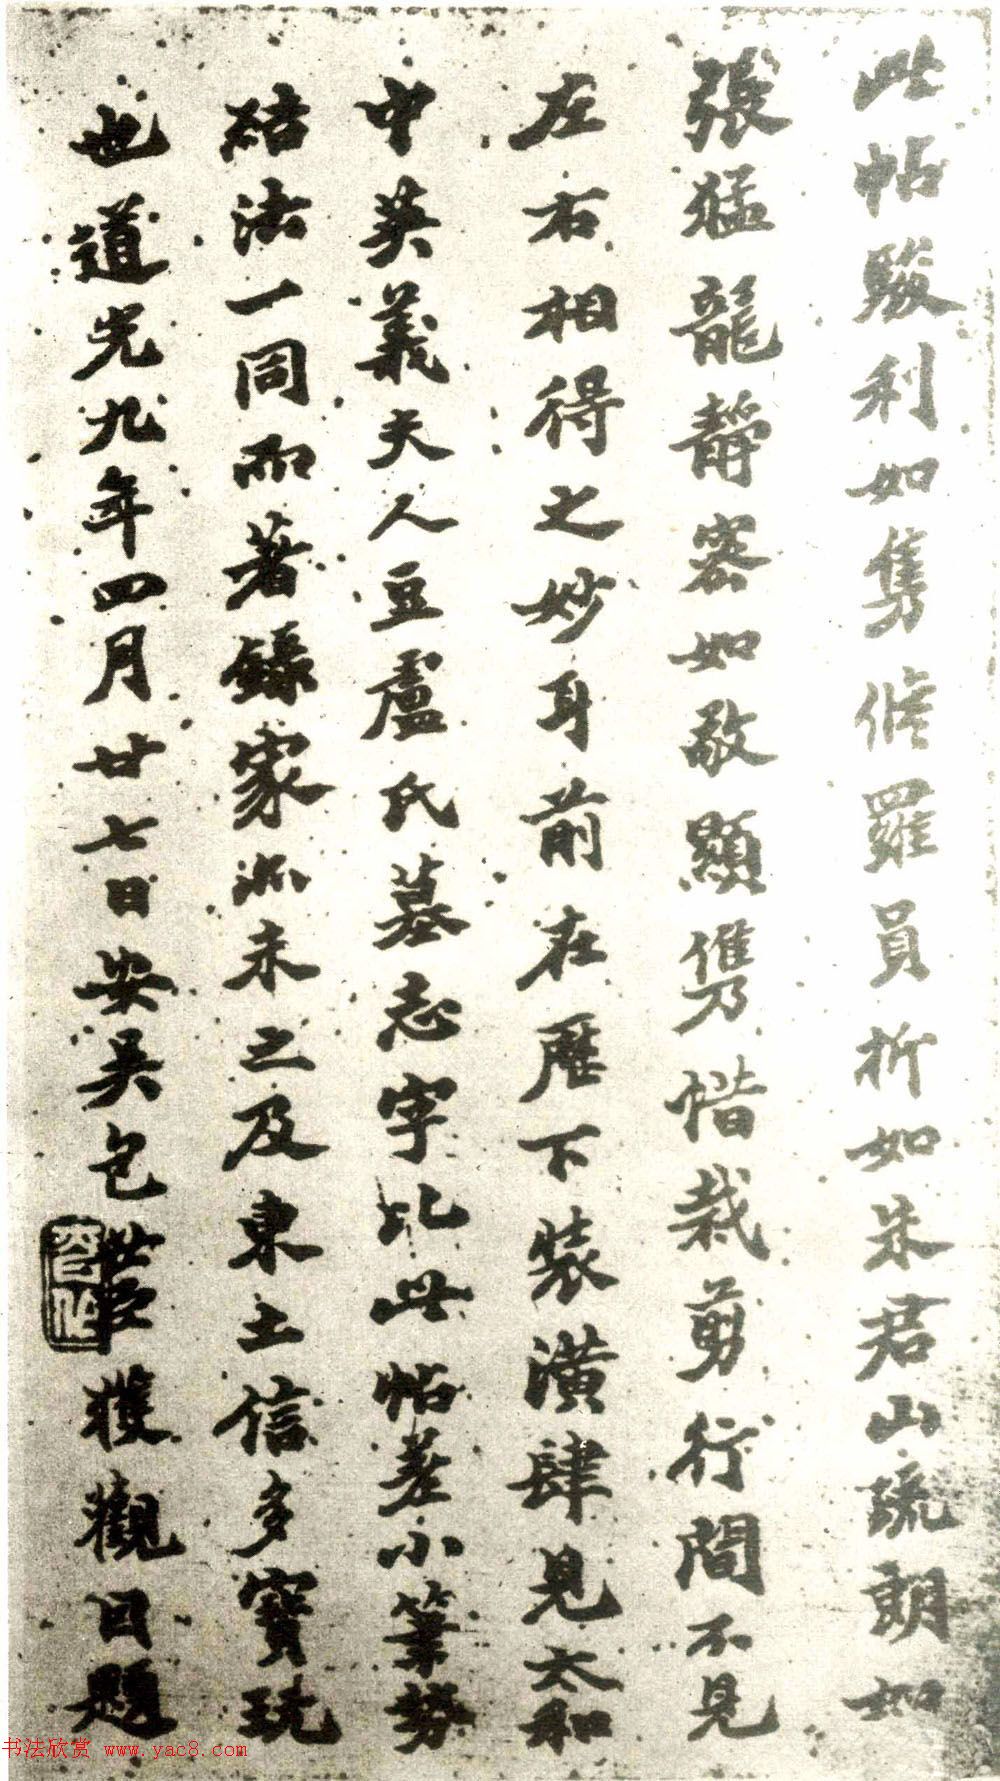 此帖駿利如雋脩羅員折如朱君山疏朗如
張猛龍靜密如敬顯儁惜栽剪行間不見
左右相得之妙耳前在歷下裝潢肆見太和
中英義夫人豆盧氏墓志字比此帖差小筆勢
結法一同而著錄家所未之及東土信多寶玩
也道光九年四月廿七日安吳包世臣獲觀因題
书法欣赏 www.yac8.com